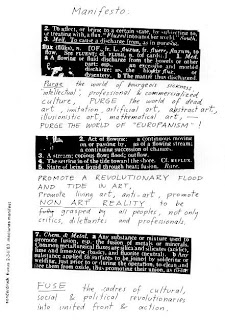 Manifesto:
2. To affect, or bring to a certain state, by subjecting to,
or treating with, a flux. "Fluxed into another world." South.
3. Med. To cause a discharge from, as in purging.
flux (flŭks), n. [OF., fr. L. fluxus, fr. fluere, fluxum, to
flow. See FLUENT; cf. FLUSH, n. (of cards).] 1. Med.
a A flowing or fluid discharge from the bowels or
other part; esp., an excessive and morbid
discharge; as, the bloody flux, or
dysentery. b The matter thus discharged.
Purge the world of bourgeois sickness,
"intellectual", professional & commercialized
culture, PURGE the world of dead
art, imitation, artificial art, abstract art,
illusionistic art, mathematical art, —
PURGE THE WORLD OF "EUROPANISM"!
2. Act of flowing: a continuous moving
on or passing by, as of a flowing stream;
a continuing succession of changes.
3. A stream; copious flow; flood; outflow.
4. The setting in of the tide toward the shore. Cf. REFLUX.
5. State of being liquid through heat; fusion. Rare.
PROMOTE A REVOLUTIONARY FLOOD
AND TIDE IN ART,
Promote living art, anti-art, promote
NON ART REALITY to be
grasped by all peoples, not only
critics, dilettantes and professionals.
7. Chem. & Metal. a Any substance or mixture used to
promote fusion, esp. the fusion of metals or minerals.
Common metallurgical fluxes are silica and silicates (acidic),
lime and limestone (basic), and fluorite (neutral). b Any
substance applied to surfaces to be joined by soldering or
welding, just prior to or during the operation, to clean and
free them from oxide, thus promoting their union, as rosin.
FUSE the cadres of cultural,
social & political revolutionaries
into united front & action.